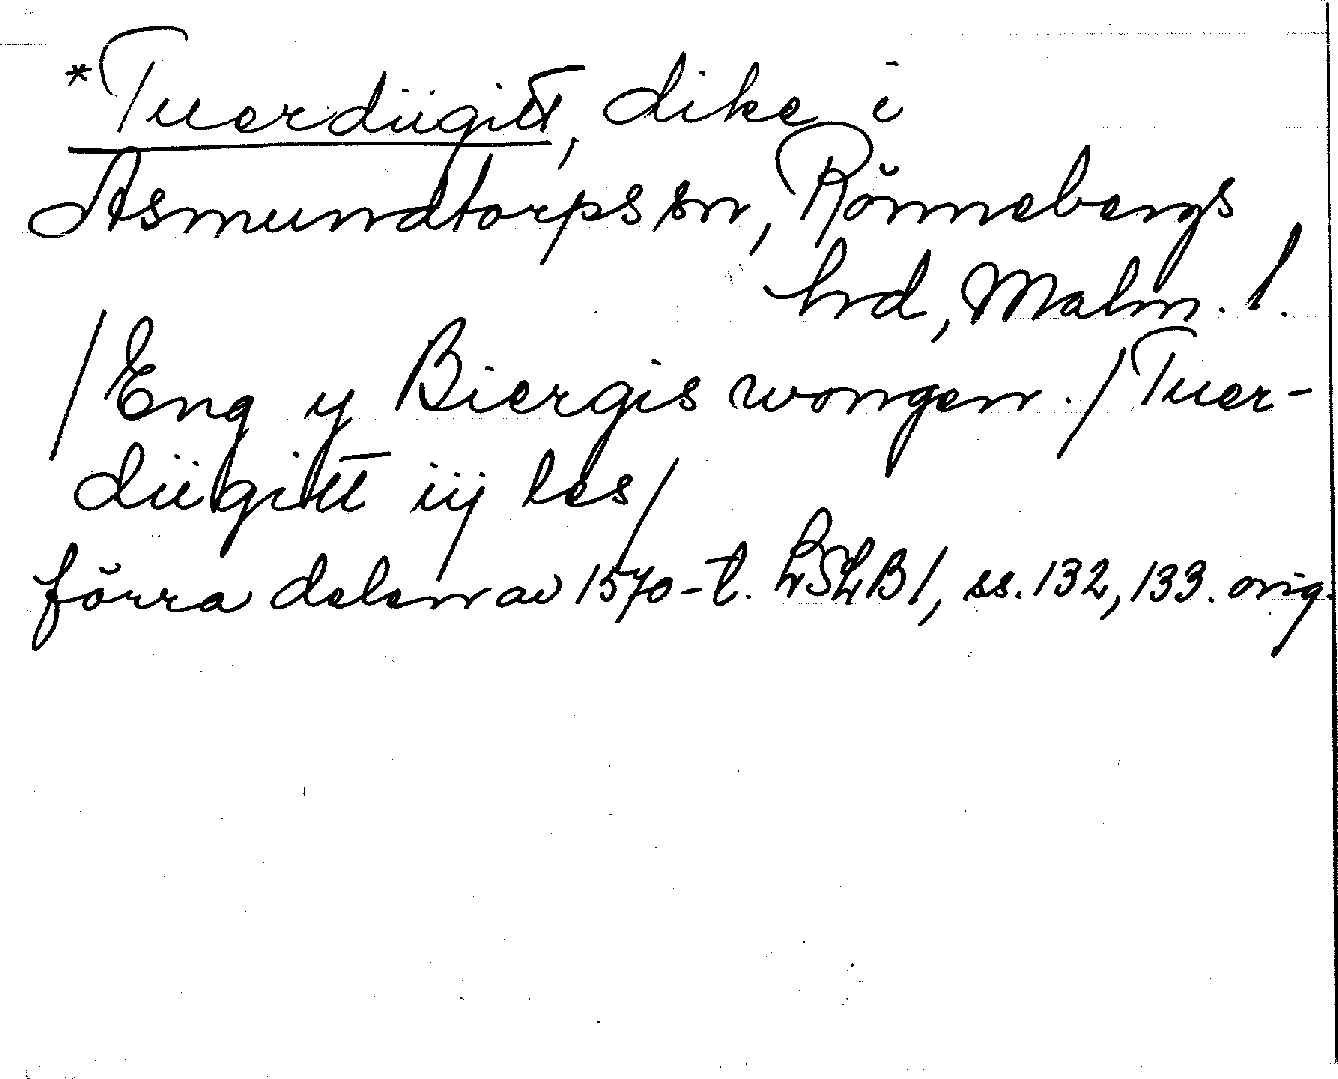 *Tuerdiigitt, dike i
Asmundtorps sn, Rönnebergs
hrd, Malm. l.
/Eng y Biergis wongen./Tuer-
diigitt iij les/
förra delen av 1570-t. LSLB1, ss. 132, 133. orig.